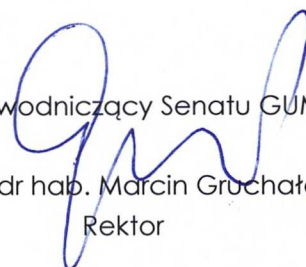 wodniczący Senatu GUM
dr hab. Marcin Gruchała
Rektor